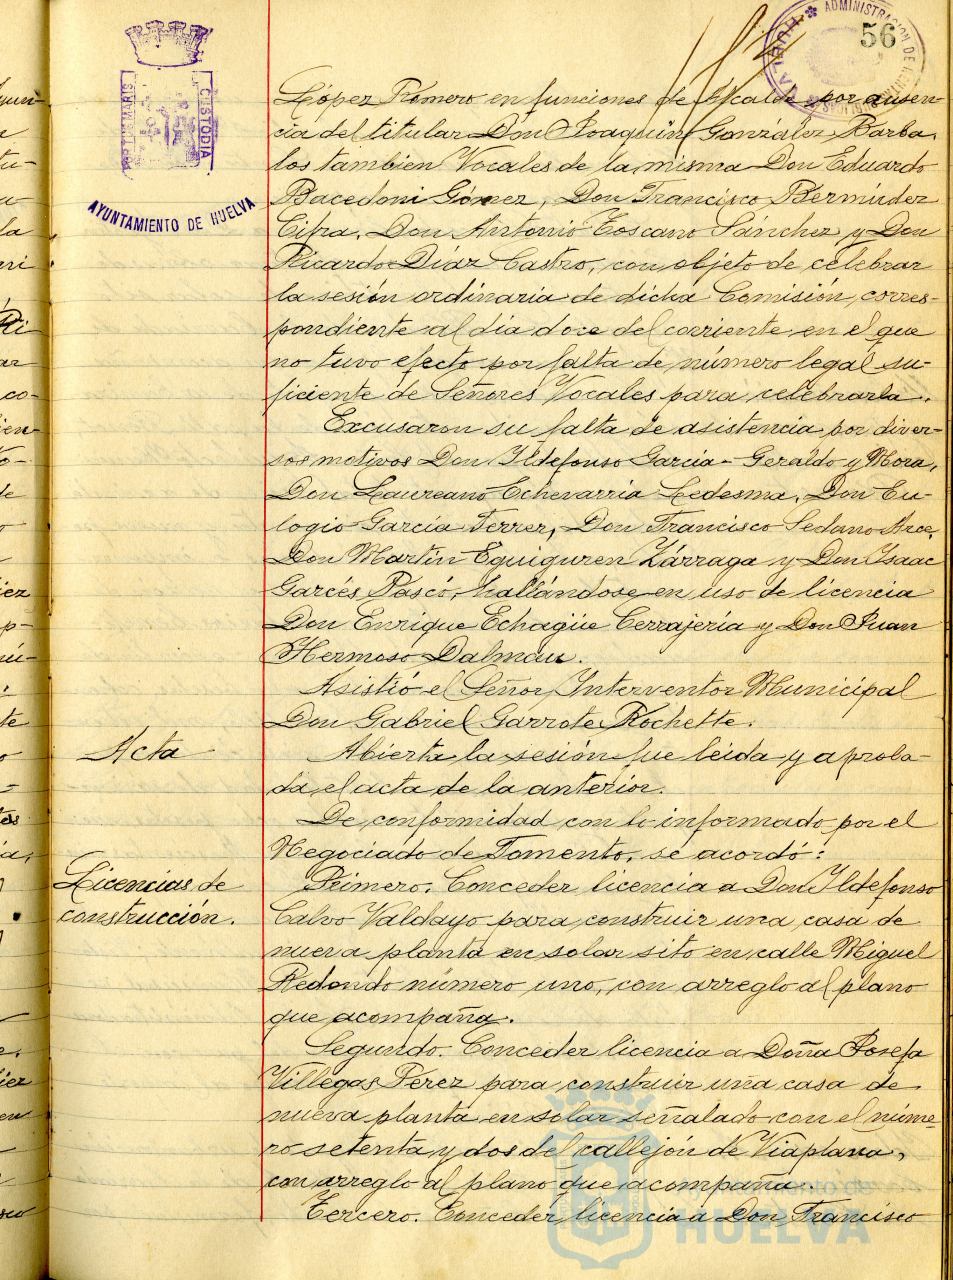 56
ADMINISTRACION DE
HUELVA
PORTUS MARIS
CUSTODIA
AYUNTAMIENTO DE HUELVA
López Romero en funciones de Alcalde por ausen-
cia del titular Don Joaquín González Barba,
los tambien Vocales de la misma Don Eduardo
Bacedoni Gómez, Don Francisco Bermúdez
Cifra, Don Antonio Toscano Sánchez y Don
Ricardo Díaz Castro, con objeto de celebrar
la sesión ordinaria de dicha Comisión, corres-
pondiente al día doce del corriente en el que
no tuvo efecto por falta de número legal su-
ficiente de Señores Vocales para celebrarla.
Excusaron su falta de asistencia por diver-
sos motivos Don Ildefonso García-Geraldo y Mora,
Don Laureano Echevarría Ledesma, Don Eu-
logio García Ferrer, Don Francisco Sedano Arce,
Don Martín Eguiguren Zárraga y Don Isaac
Garcés Pascó, hallándose en uso de licencia
Don Enrique Echagüe Cerrajería y Don Juan
Hermoso Dalmau.
Asistió el Señor Interventor Municipal
Don Gabriel Garrote Rochette.
Acta
Abierta la sesión fue leida y aproba-
da el acta de la anterior.
De conformidad con lo informado por el
Negociado de Fomento, se acordó:
Licencias de
construcción.
Primero. Conceder licencia a Don Ildefonso
Calvo Valdayo para construir una casa de
nueva planta en solar sito en calle Miguel
Redondo número uno, con arreglo al plano
que acompaña.
Segundo. Conceder licencia a Doña Josefa
Villegas Perez para construir uña casa de
nueva planta en solar señalado con el núme-
ro setenta y dos del callejón de Viaplana,
con arreglo al plano que acompaña.
Tercero. Conceder licencia a Don Francisco
Ayuntamiento de
HUELVA